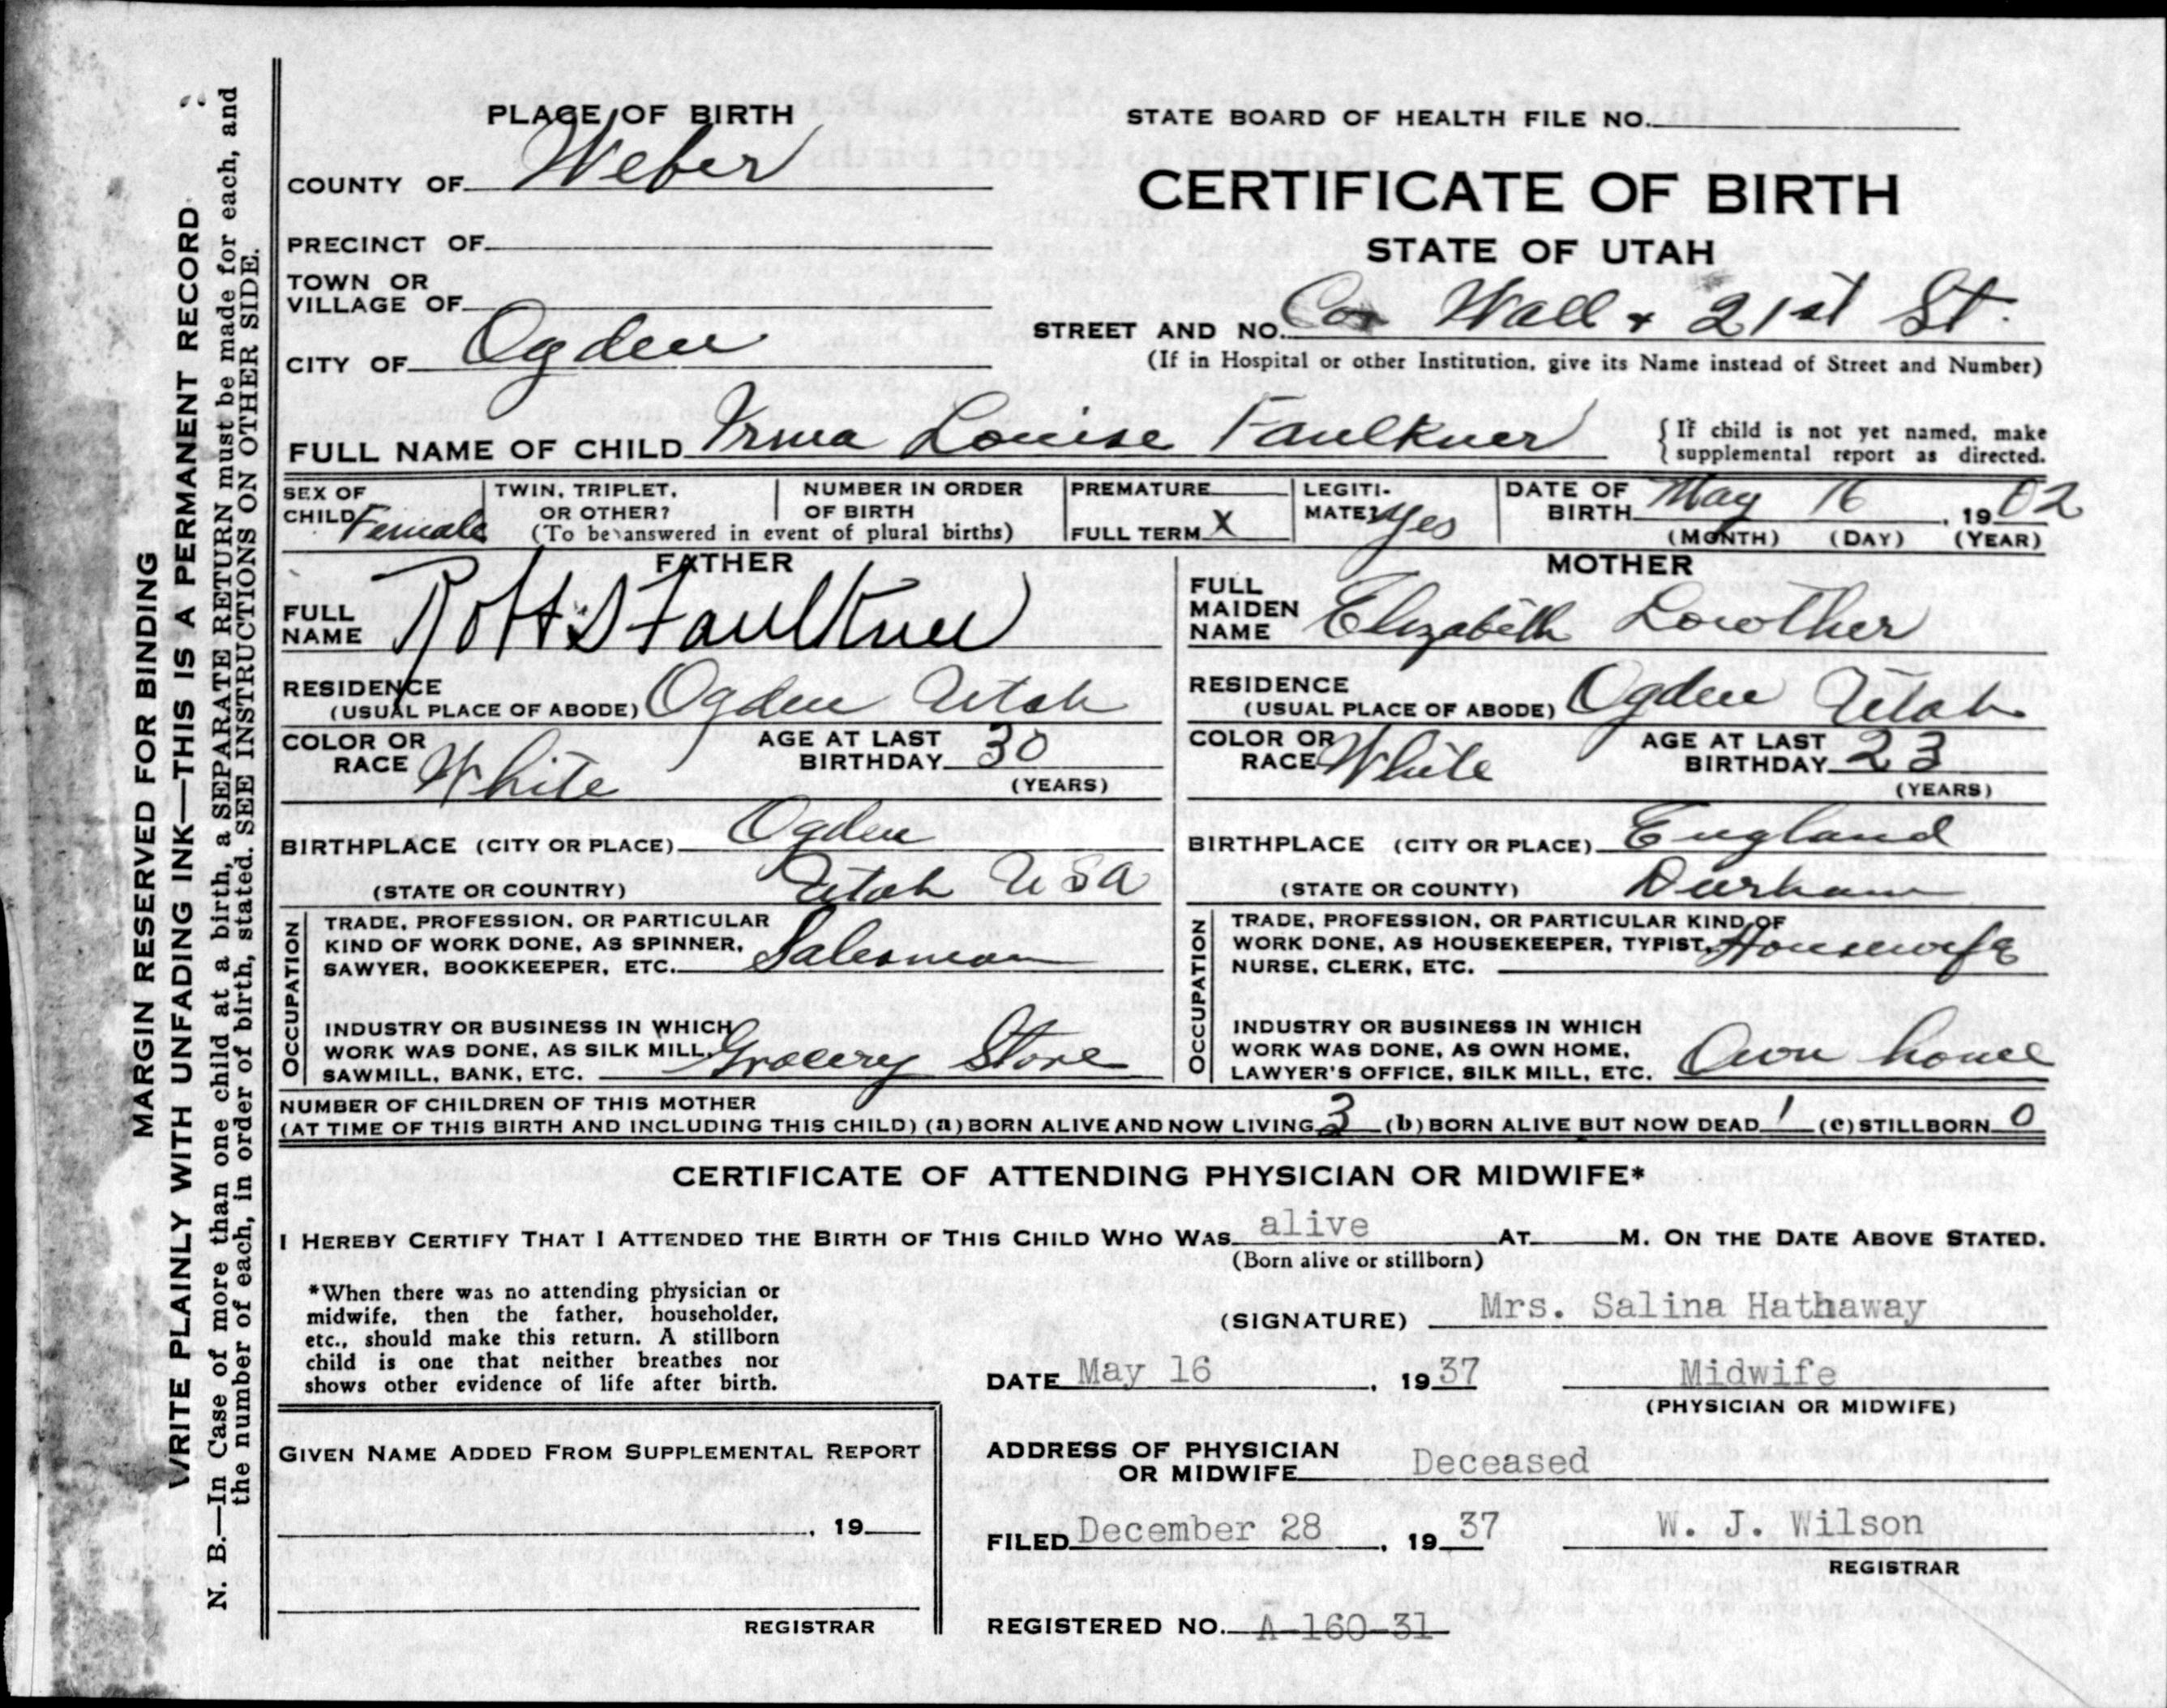 PLACE OF BIRTH
COUNTY OF Weber
PRECINCT OF
TOWN OR
VILLAGE OF
CITY OF Ogden
STATE BOARD OF HEALTH FILE NO.
CERTIFICATE OF BIRTH
STATE OF UTAH
STREET AND NO. Cor Wall + 21st St.
(If in Hospital or other Institution, give its Name instead of Street and Number)
FULL NAME OF CHILD Irma Louise Faulkner
{ If child is not yet named, make
supplemental report as directed.
SEX OF
CHILD Female
TWIN, TRIPLET,
OR OTHER?
NUMBER IN ORDER
OF BIRTH
(To be answered in event of plural births)
PREMATURE
FULL TERM X
LEGITI-
MATE? Yes
DATE OF
BIRTH May 16, 1902
(MONTH) (DAY) (YEAR)
FATHER
FULL
NAME Robt S Faulkner
RESIDENCE
(USUAL PLACE OF ABODE) Ogden Utah
COLOR OR
RACE White
AGE AT LAST
BIRTHDAY 30
(YEARS)
BIRTHPLACE (CITY OR PLACE) Ogden
(STATE OR COUNTRY) Utah USA
OCCUPATION
TRADE, PROFESSION, OR PARTICULAR
KIND OF WORK DONE, AS SPINNER,
SAWYER, BOOKKEEPER, ETC. Salesman
INDUSTRY OR BUSINESS IN WHICH
WORK WAS DONE, AS SILK MILL,
SAWMILL, BANK, ETC. Grocery Store
MOTHER
FULL
MAIDEN
NAME Elizabeth Lowther
RESIDENCE
(USUAL PLACE OF ABODE) Ogden Utah
COLOR OR
RACE White
AGE AT LAST
BIRTHDAY 23
(YEARS)
BIRTHPLACE (CITY OR PLACE) England
(STATE OR COUNTY) Durham
OCCUPATION
TRADE, PROFESSION, OR PARTICULAR KIND OF
WORK DONE, AS HOUSEKEEPER, TYPIST, Housewife
NURSE, CLERK, ETC.
INDUSTRY OR BUSINESS IN WHICH
WORK WAS DONE, AS OWN HOME,
LAWYER'S OFFICE, SILK MILL, ETC. Own home
NUMBER OF CHILDREN OF THIS MOTHER
(AT TIME OF THIS BIRTH AND INCLUDING THIS CHILD) (a) BORN ALIVE AND NOW LIVING 3 (b) BORN ALIVE BUT NOW DEAD 1 (c) STILLBORN 0
CERTIFICATE OF ATTENDING PHYSICIAN OR MIDWIFE*
I HEREBY CERTIFY THAT I ATTENDED THE BIRTH OF THIS CHILD WHO WAS alive AT M. ON THE DATE ABOVE STATED.
(Born alive or stillborn)
*When there was no attending physician or
midwife, then the father, householder,
etc., should make this return. A stillborn
child is one that neither breathes nor
shows other evidence of life after birth.
(SIGNATURE) Mrs. Salina Hathaway
DATE May 16, 1937 Midwife
(PHYSICIAN OR MIDWIFE)
GIVEN NAME ADDED FROM SUPPLEMENTAL REPORT
, 19
REGISTRAR
ADDRESS OF PHYSICIAN
OR MIDWIFE Deceased
FILED December 28, 1937 W. J. Wilson
REGISTRAR
REGISTERED NO. A-160-31
MARGIN RESERVED FOR BINDING
WRITE PLAINLY WITH UNFADING INK—THIS IS A PERMANENT RECORD
N. B.—In Case of more than one child at a birth, a SEPARATE RETURN must be made for each, and
the number of each, in order of birth, stated. SEE INSTRUCTIONS ON OTHER SIDE.